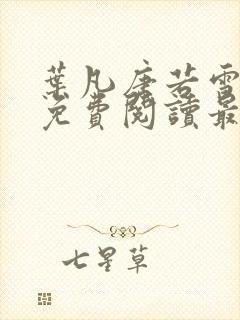 葉凡唐若雪
免費閱讀最
七星草